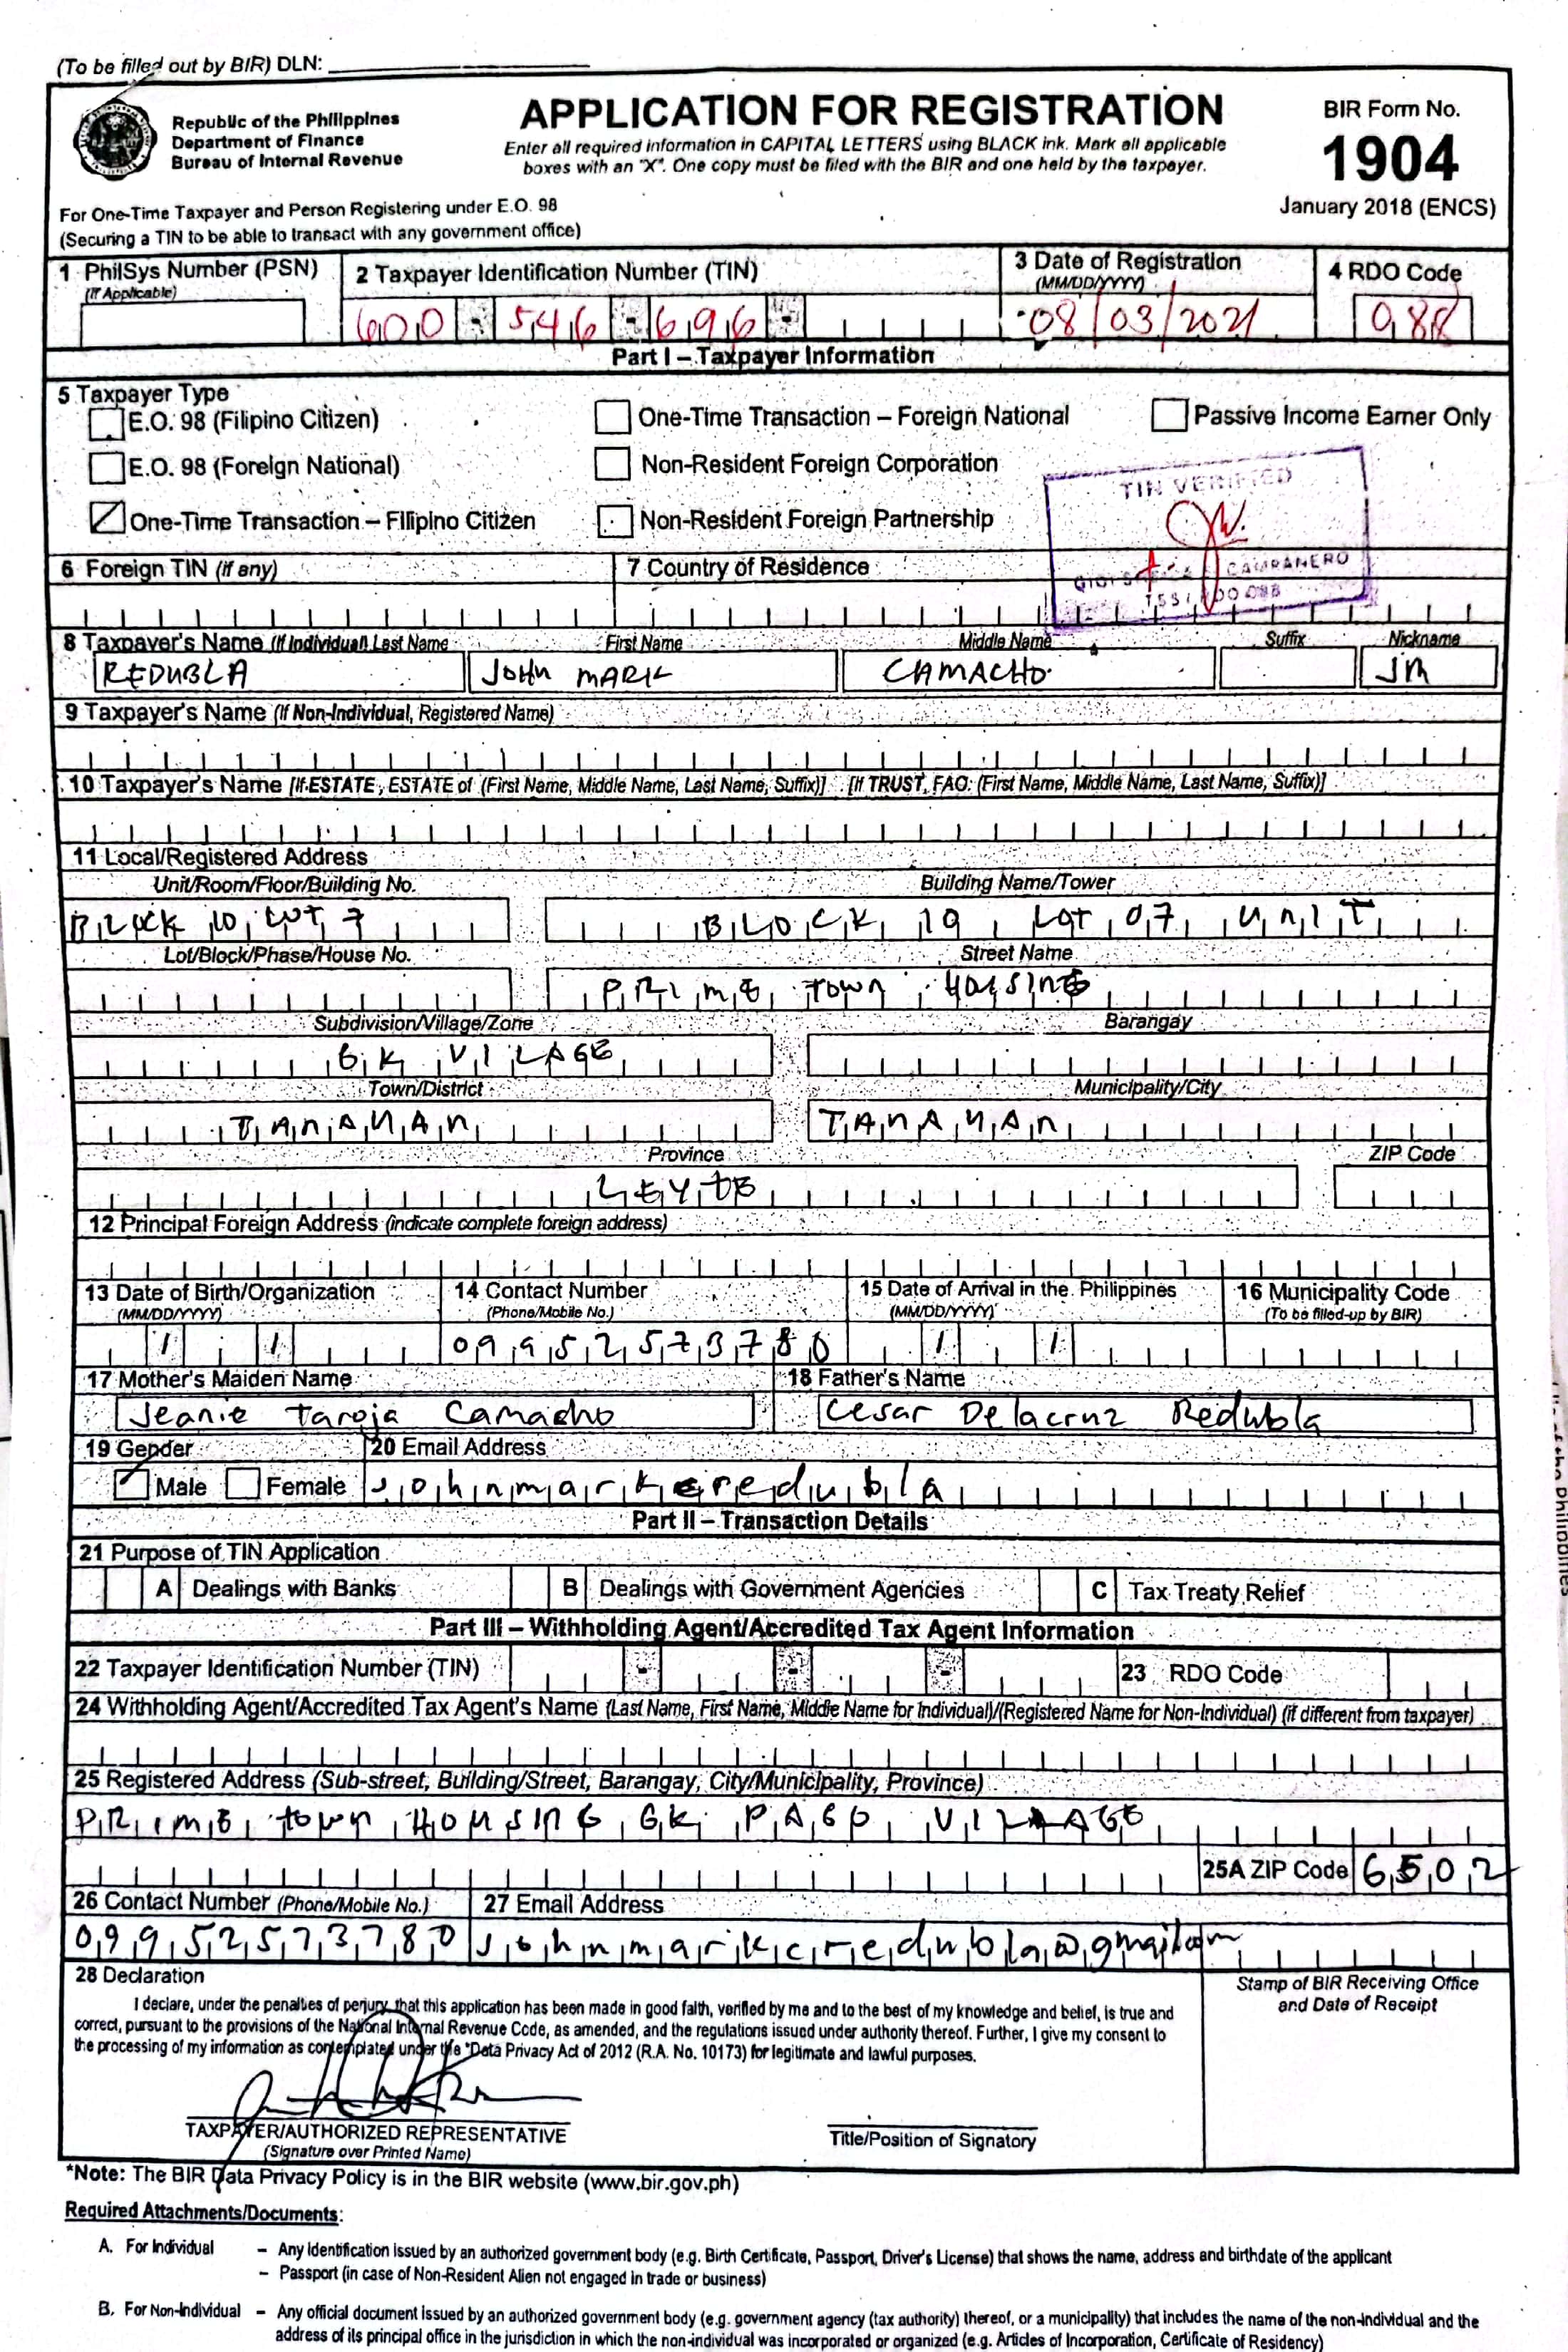 (To be filled out by BIR) DLN:
Republic of the Philippines
Department of Finance
Bureau of Internal Revenue
APPLICATION FOR REGISTRATION
Enter all required information in CAPITAL LETTERS using BLACK ink. Mark all applicable
boxes with an "X". One copy must be filed with the BIR and one held by the taxpayer.
BIR Form No.
1904
January 2018 (ENCS)
For One-Time Taxpayer and Person Registering under E.O. 98
(Securing a TIN to be able to transact with any government office)
1 PhilSys Number (PSN)
(If Applicable)
2 Taxpayer Identification Number (TIN)
600 - 546 - 696 -
3 Date of Registration
(MM/DD/YYYY)
08/03/2021
4 RDO Code
088
Part I – Taxpayer Information
5 Taxpayer Type
E.O. 98 (Filipino Citizen)
One-Time Transaction – Foreign National
Passive Income Earner Only
E.O. 98 (Foreign National)
Non-Resident Foreign Corporation
One-Time Transaction – Filipino Citizen
Non-Resident Foreign Partnership
TIN VERIFIED
CAMPANERO
6 Foreign TIN (if any)
7 Country of Residence
8 Taxpayer's Name (If Individual) Last Name First Name Middle Name Suffix Nickname
REDUBLA JOHN MARK CAMACHO JM
9 Taxpayer's Name (If Non-Individual, Registered Name)
10 Taxpayer's Name [If ESTATE, ESTATE of (First Name, Middle Name, Last Name, Suffix)] [If TRUST, FAO: (First Name, Middle Name, Last Name, Suffix)]
11 Local/Registered Address
Unit/Room/Floor/Building No. Building Name/Tower
BLOCK 10 LOT 7 BLOCK 10 LOT 07 UNIT
Lot/Block/Phase/House No. Street Name
PRIME TOWN HOUSING
Subdivision/Village/Zone Barangay
GK VILAGE
Town/District Municipality/City
TANAUAN TANAUAN
Province ZIP Code
LEYTE
12 Principal Foreign Address (indicate complete foreign address)
13 Date of Birth/Organization
(MM/DD/YYYY)
14 Contact Number
(Phone/Mobile No.)
09952573780
15 Date of Arrival in the Philippines
(MM/DD/YYYY)
16 Municipality Code
(To be filled-up by BIR)
17 Mother's Maiden Name
Jeanie Taroja Camacho
18 Father's Name
Cesar Delacruz Redubla
19 Gender
Male Female
20 Email Address
Johnmarkcredubla
Part II – Transaction Details
21 Purpose of TIN Application
A Dealings with Banks B Dealings with Government Agencies C Tax Treaty Relief
Part III – Withholding Agent/Accredited Tax Agent Information
22 Taxpayer Identification Number (TIN) - - - 23 RDO Code
24 Withholding Agent/Accredited Tax Agent's Name (Last Name, First Name, Middle Name for Individual)/(Registered Name for Non-Individual) (if different from taxpayer)
25 Registered Address (Sub-street, Building/Street, Barangay, City/Municipality, Province)
PRIME town HOUSING GK PAGO VILLAGE
25A ZIP Code 6502
26 Contact Number (Phone/Mobile No.)
09952573780
27 Email Address
Johnmarkcredubla@gmail.com
28 Declaration
I declare, under the penalties of perjury, that this application has been made in good faith, verified by me and to the best of my knowledge and belief, is true and
correct, pursuant to the provisions of the National Internal Revenue Code, as amended, and the regulations issued under authority thereof. Further, I give my consent to
the processing of my information as contemplated under the *Data Privacy Act of 2012 (R.A. No. 10173) for legitimate and lawful purposes.
Stamp of BIR Receiving Office
and Date of Receipt
TAXPAYER/AUTHORIZED REPRESENTATIVE
(Signature over Printed Name)
Title/Position of Signatory
*Note: The BIR Data Privacy Policy is in the BIR website (www.bir.gov.ph)
Required Attachments/Documents:
A. For Individual – Any identification issued by an authorized government body (e.g. Birth Certificate, Passport, Driver's License) that shows the name, address and birthdate of the applicant
– Passport (in case of Non-Resident Alien not engaged in trade or business)
B. For Non-Individual – Any official document issued by an authorized government body (e.g. government agency (tax authority) thereof, or a municipality) that includes the name of the non-individual and the
address of its principal office in the jurisdiction in which the non-individual was incorporated or organized (e.g. Articles of Incorporation, Certificate of Residency)